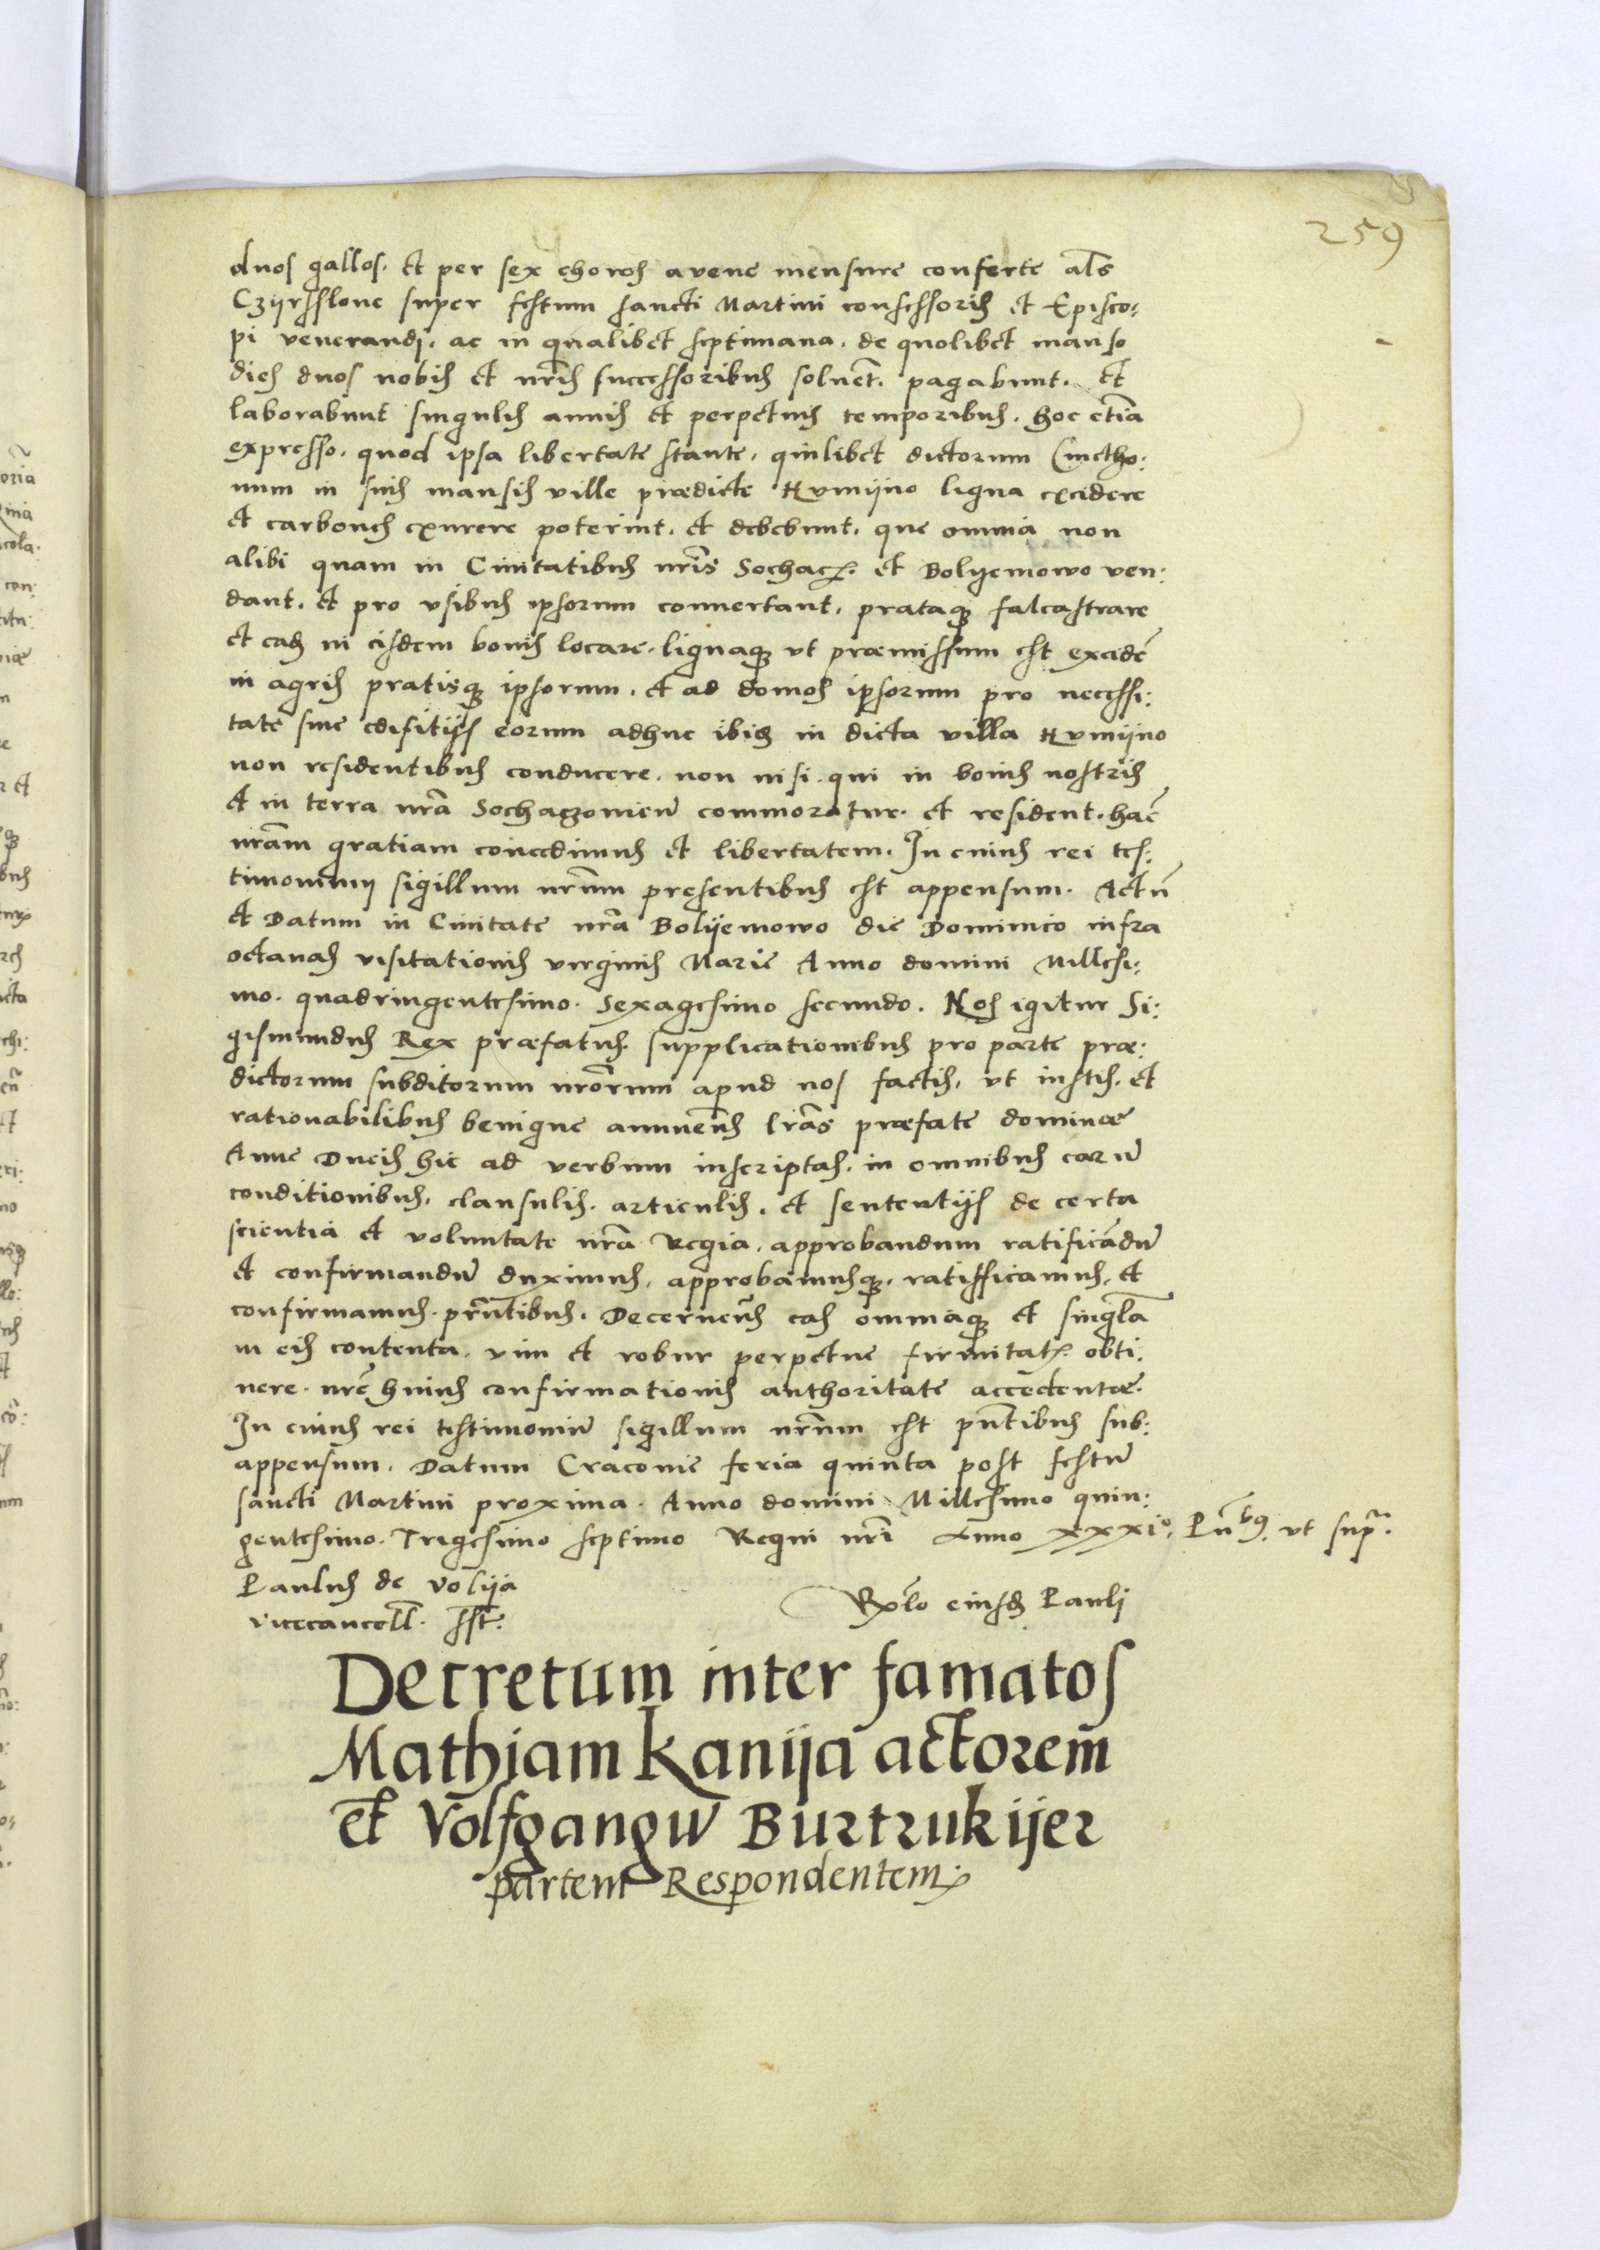 259
duos gallos. et per sex choros avene mensure conferte als
Czijrsslone super festum sancti Martini confessoris et Episco:
pi venerandj. ac in qualibet septimana. de quolibet manso
dies duos nobis et nris successoribus soluent. pagabunt. et
laborabunt singulis annis et perpetuis temporibus. hoc etia
expresso. quod ipsa libertate stante. quilibet dictorum Cmetho:
num in suis mansis ville prædicte Humijno ligna excidere
et carbones exurere poterint. et debebunt. que omnia non
alibi quam in Civitatibus nris Sochacz. et Bolijemowo ven:
dant. et pro vsibus ipsorum convertant. prataque falcastrare
et eas in eisdem bonis locare. lignaque vt præmissum est excidē
in agris pratisque ipsorum. et ad domos ipsorum pro necessi:
tate sine edifitijs eorum adhuc ibidem in dicta villa Humijno
non residentibus conducere. non nisi. qui in bonis nostris
et in terra nra Sochaczonien commoratur. et resident. hac
nram gratiam concedimus et libertatem. In cuius rei tes:
timonium sigillum nrum presentibus est appensum. Actū
et Datum in Civitate nra Bolijemowo die Dominico infra
octavas visitationis virginis Marie Anno domini Millesi:
mo. quadringentesimo. Sexagesimo secundo. Nos igitur Si:
gismundus Rex præfatus. supplicationibus pro parte præ:
dictorum subditorum nrorum apud nos factis. vt iustis. et
rationabilibus benigne annuens lras præfate dominæ
Anne Ducis hic ad verbum inscriptas. in omnibus earū
conditionibus. clausulis. articulis. et sententijs de certa
scientia et voluntate nra Regia. approbandum ratificandū
et confirmandū duximus. approbamusque. ratifficamus. et
confirmamus. prntibus. Decernens eas omniaque et singla
in eis contenta. vim et robur perpetue firmitatis obti:
nere. nre huius confirmationis authoritate accedente.
In cuius rei testimoniū sigillum nrum est pntibus sub:
appensum. Datum Cracovie feria quinta post festū
sancti Martini proxima. Anno domini Millesimo quin:
gentesimo. Trigesimo septimo Regni nri Anno xxxio. Pntbus. vt supra.
Paulus de Volija
vicecancell. sst.
Relo eiusdem Pauli
Decretum inter famatos
Mathiam Kanija actorem
et Volfgangū Burtrukijer
partem Respondentem.